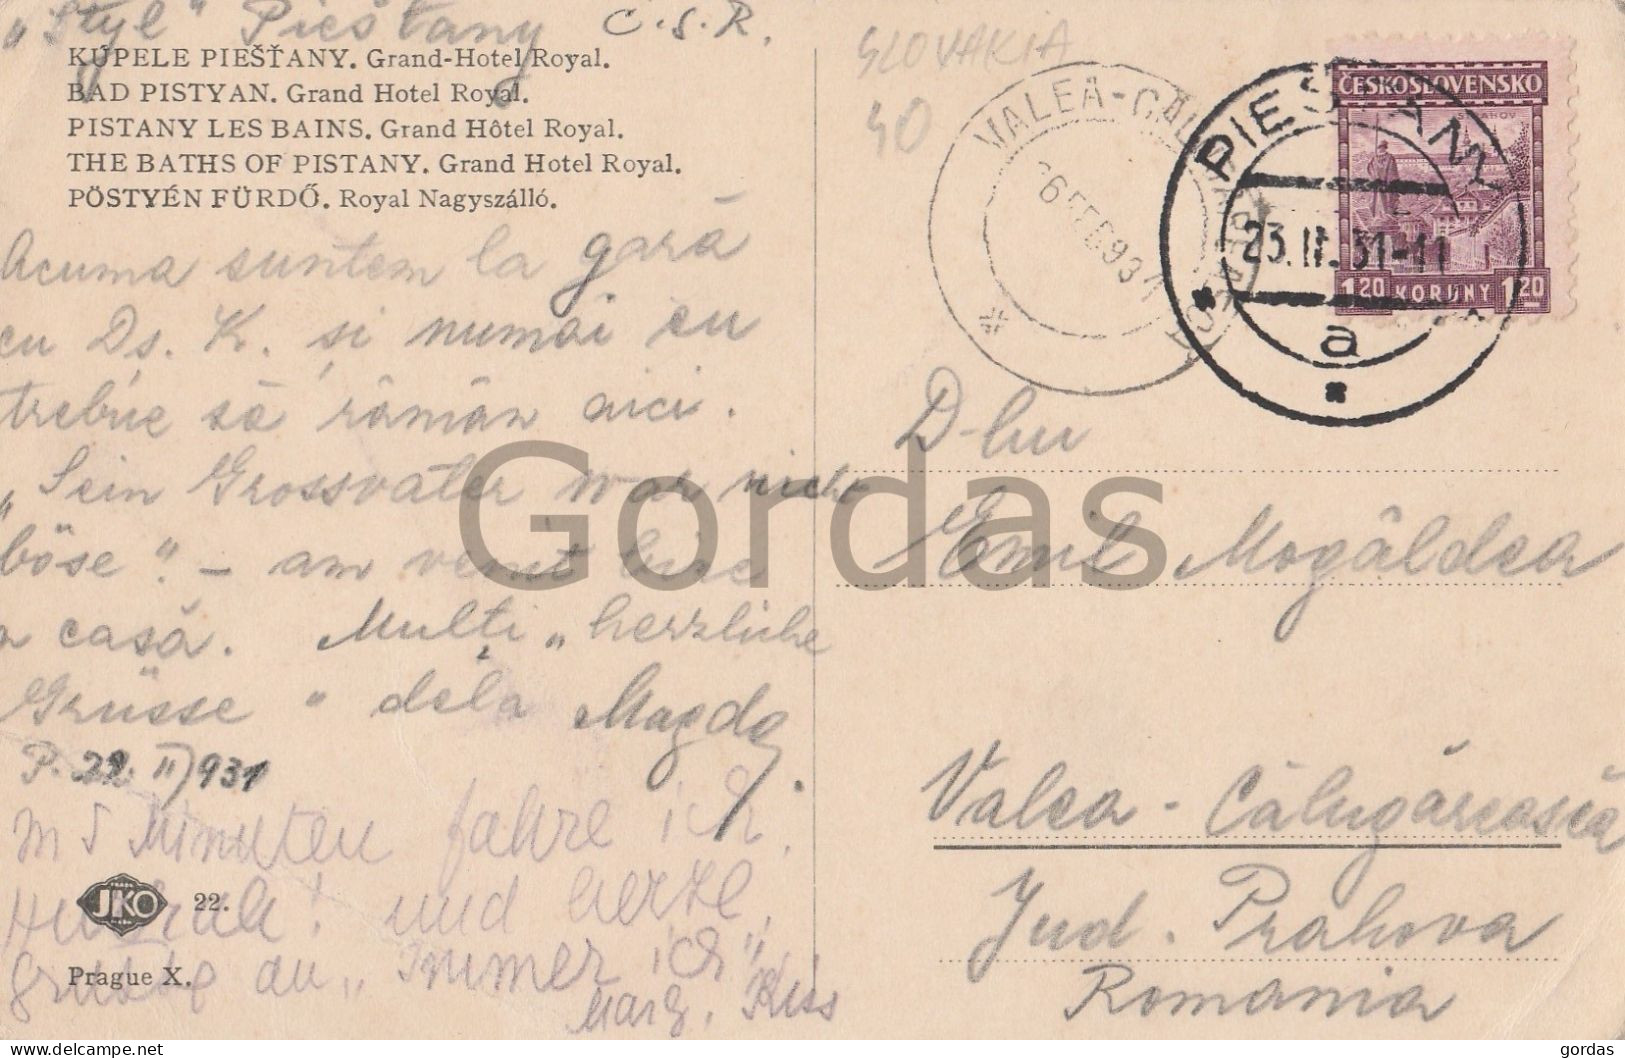 "Styl" Piešťany C.S.R.
KÚPELE PIEŠŤANY. Grand-Hotel Royal.
BAD PISTYAN. Grand Hotel Royal.
PISTANY LES BAINS. Grand Hôtel Royal.
THE BATHS OF PISTANY. Grand Hotel Royal.
PÖSTYÉN FÜRDŐ. Royal Nagyszálló.
Acuma suntem la gară
cu Ds. K. și numai eu
trebue să rămân aici.
„Sein Grossvater war nicht
böse". - am venit
a casă. Mulți „herzliche
Grüsse" dela Magda
P. 22. II 931
in 5 Minuten fahre ich,
Hurrah! und herzl.
Grüsse an „Immer ich"
Marg. Kiss
JKO
22.
Prague X.
SLOVAKIA
40
VALEA-CĂLUGĂREASCĂ
26 FEB 931
PIEŠŤANY
23.II.31-11
a
ČESKOSLOVENSKO
STRAHOV
1.20 KORUNY 1.20
D-lui
Emil Mogâldea
Valea-Călugărească
Jud. Prahova
Romania
Gordas
gordas
delcampe.net